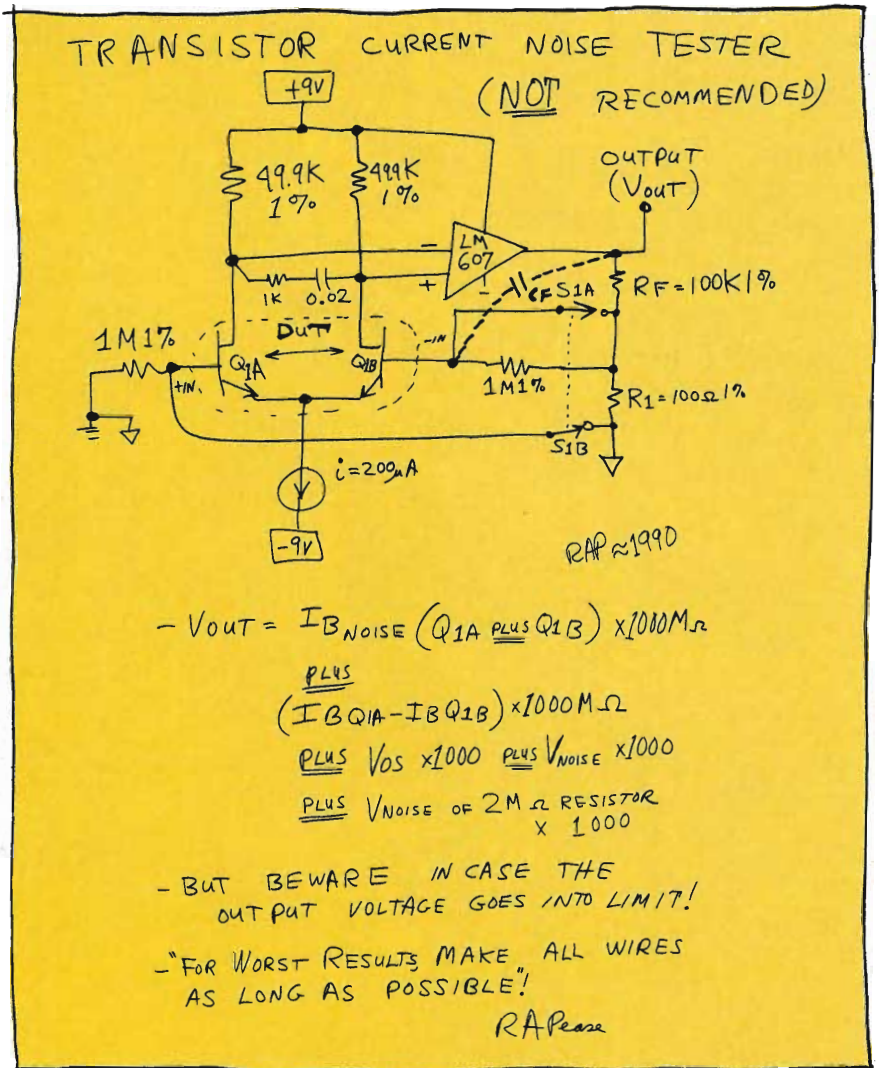 TRANSISTOR CURRENT NOISE TESTER
(NOT RECOMMENDED)
+9V
OUTPUT
(VOUT)
49.9K
1%
499K
1%
-
LM
607
+
-
1K
0.02
CF
S1A
RF=100K1%
1M1%
DUT
-IN
+IN
Q1A
Q1B
1M1%
R1=100Ω1%
S1B
i=200μA
-9V
RAP≈1990
- VOUT = IB NOISE (Q1A PLUS Q1B) X1000MΩ
PLUS
(IB Q1A-IB Q1B)×1000MΩ
PLUS VOS X1000 PLUS VNOISE X1000
PLUS VNOISE OF 2MΩ RESISTOR
X 1000
- BUT BEWARE IN CASE THE
OUTPUT VOLTAGE GOES INTO LIMIT!
-"FOR WORST RESULTS MAKE ALL WIRES
AS LONG AS POSSIBLE"!
RAPease